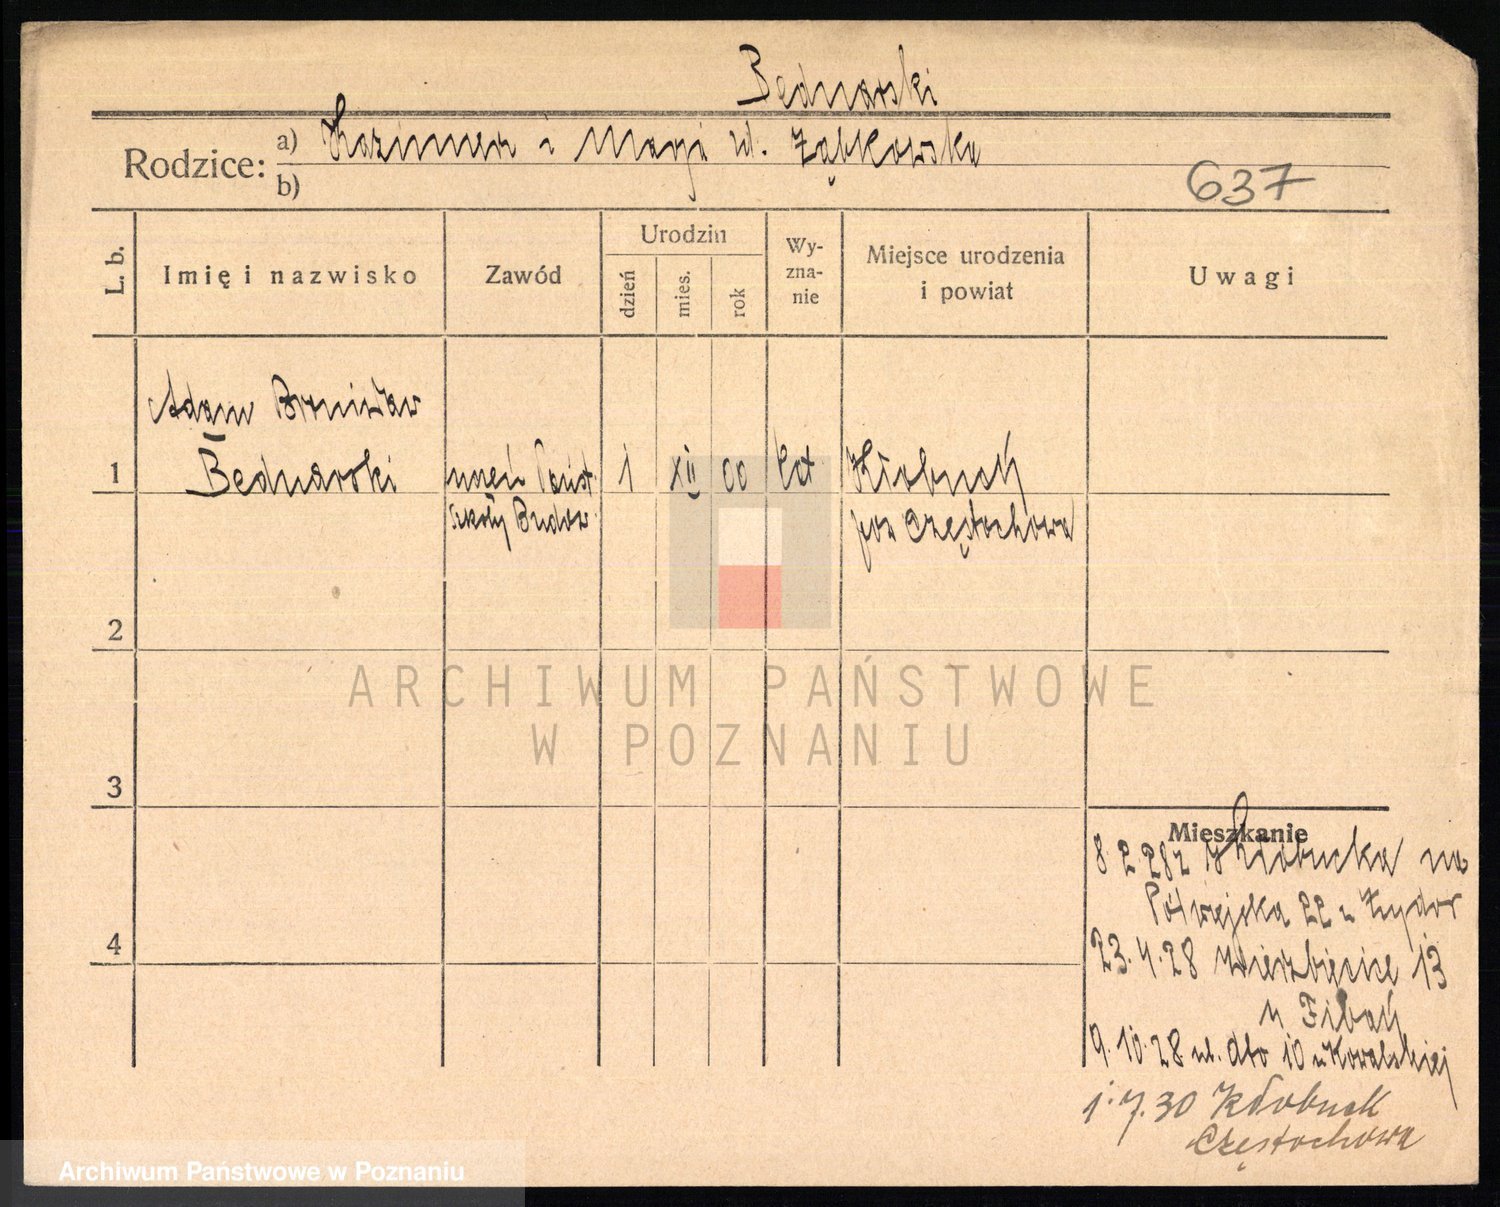 Bednarski
Rodzice: a) Kazimierz i Marja ul. Ząbkowska
b)
637
L. b.
Imię i nazwisko
Zawód
Urodzin
dzień
mies.
rok
Wy-
zna-
nie
Miejsce urodzenia
i powiat
Uwagi
Adam Bronisław
1 Bednarski uczeń Państ. 1 XII 00 kat Kłobuck
Szkoły Budow. pow Częstochowa
2
3
4
Mieszkanie
8 2 28 z Kłobucka na
Półwiejska 22 u
23.4.28 Wierzbięcice 13
u
9.10.28 ul. dto 10 u Kowalskiej
1.7.30 Kłobuck
Częstochowa
ARCHIWUM PAŃSTWOWE
W POZNANIU
Archiwum Państwowe w Poznaniu